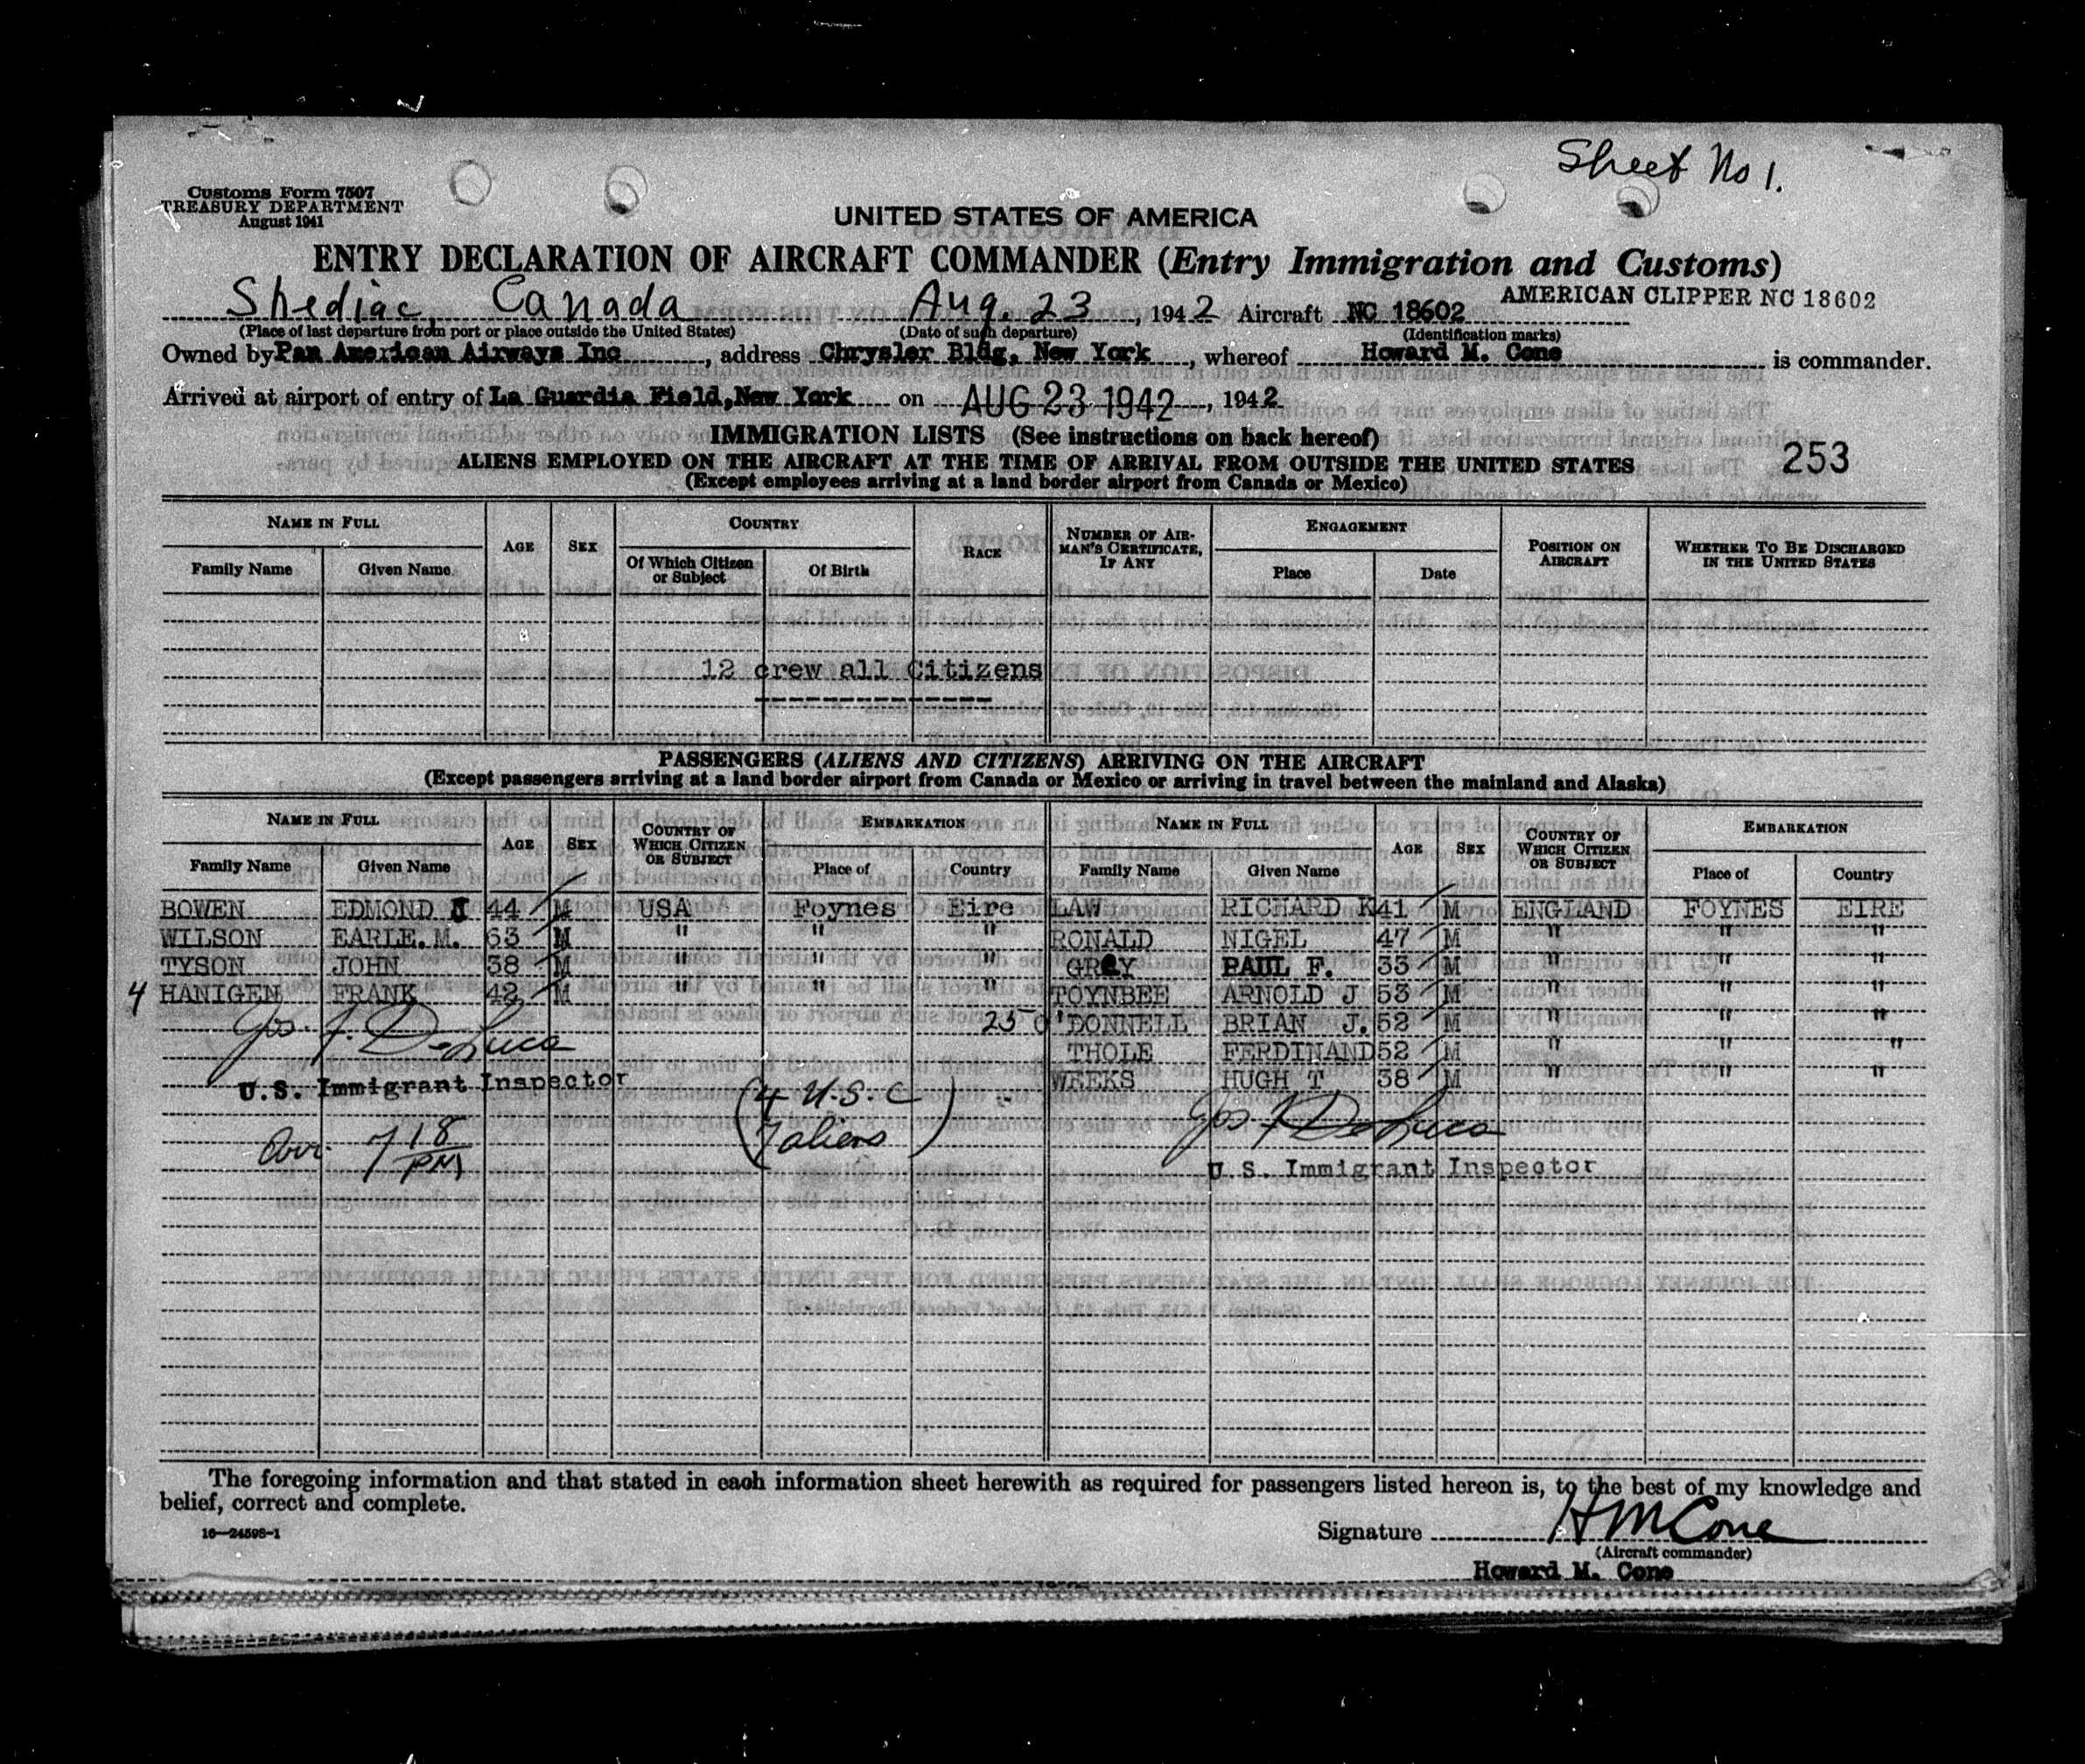 Sheet No 1.
Customs Form 7507
TREASURY DEPARTMENT
August 1941
UNITED STATES OF AMERICA
ENTRY DECLARATION OF AIRCRAFT COMMANDER (Entry Immigration and Customs)
AMERICAN CLIPPER NC 18602
Shediac, Canada Aug. 23, 1942 Aircraft NC 18602
(Place of last departure from port or place outside the United States) (Date of such departure) (Identification marks)
Owned by Pan American Airways Inc, address Chrysler Bldg. New York, whereof Howard M. Cone is commander.
Arrived at airport of entry of La Guardia Field, New York on AUG 23 1942, 1942
IMMIGRATION LISTS (See instructions on back hereof)
253
ALIENS EMPLOYED ON THE AIRCRAFT AT THE TIME OF ARRIVAL FROM OUTSIDE THE UNITED STATES
(Except employees arriving at a land border airport from Canada or Mexico)
NAME IN FULL AGE SEX COUNTRY RACE NUMBER OF AIRMAN'S CERTIFICATE, IF ANY ENGAGEMENT POSITION ON AIRCRAFT WHETHER TO BE DISCHARGED IN THE UNITED STATES
Family Name Given Name Of Which Citizen or Subject Of Birth Place Date
12 crew all Citizens
PASSENGERS (ALIENS AND CITIZENS) ARRIVING ON THE AIRCRAFT
(Except passengers arriving at a land border airport from Canada or Mexico or arriving in travel between the mainland and Alaska)
NAME IN FULL AGE SEX COUNTRY OF WHICH CITIZEN OR SUBJECT EMBARKATION NAME IN FULL AGE SEX COUNTRY OF WHICH CITIZEN OR SUBJECT EMBARKATION
Family Name Given Name Place of Country Family Name Given Name Place of Country
BOWEN EDMOND J 44 M USA Foynes Eire LAW RICHARD K 41 M ENGLAND FOYNES EIRE
WILSON EARLE. M. 63 M " " " RONALD NIGEL 47 M " " "
TYSON JOHN 38 M " " " GREY PAUL F. 33 M " " "
4 HANIGEN FRANK 42 M " " " TOYNBEE ARNOLD J 53 M " " "
O'DONNELL BRIAN J. 52 M " " "
THOLE FERDINAND 52 M " " "
WEEKS HUGH T 38 M " " "
Jos. F. DeLuca
U.S. Immigrant Inspector
(4 U.S.C
7 aliens)
Jos. F. DeLuca
U.S. Immigrant Inspector
Arr. 7 18 PM
The foregoing information and that stated in each information sheet herewith as required for passengers listed hereon is, to the best of my knowledge and
belief, correct and complete.
16—24598-1
Signature HMCone
(Aircraft commander)
Howard M. Cone